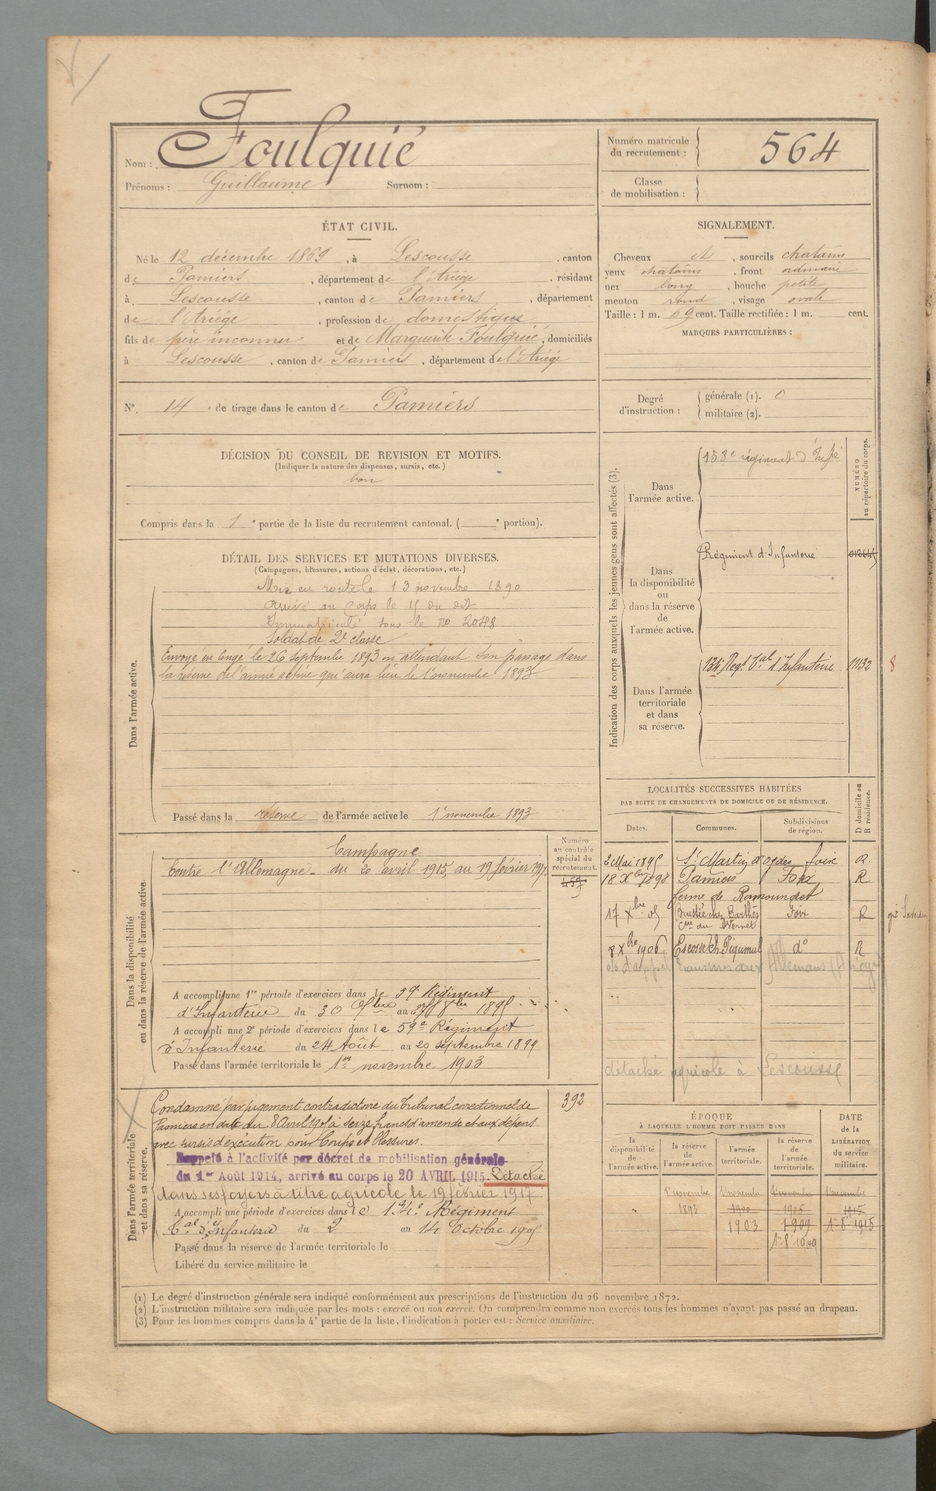 Nom : Foulquié
Prénoms : Guillaume Surnom :
Numéro matricule
du recrutement : 564
Classe
de mobilisation :
ÉTAT CIVIL.
Né le 12 décembre 1869, à Lescousse, canton
de Pamiers, département de l'Ariège, résidant
à Lescousse, canton de Pamiers, département
de l'Ariège, profession de domestique
fils de père inconnu et de Marguerite Foulquié, domiciliés
à Lescousse, canton de Pamiers, département de l'Ariège
N° 14 de tirage dans le canton de Pamiers
SIGNALEMENT.
Cheveux et, sourcils chatains
yeux chatains, front ordinaire
nez long, bouche petite
menton rond, visage ovale
Taille : 1 m. 69 cent. Taille rectifiée : 1 m. cent.
MARQUES PARTICULIÈRES :
Degré
d'instruction :
générale (1). 0
militaire (2).
DÉCISION DU CONSEIL DE REVISION ET MOTIFS.
(Indiquer la nature des dispenses, sursis, etc.)
bon
Compris dans la 1e partie de la liste du recrutement cantonal. ( e portion).
DÉTAIL DES SERVICES ET MUTATIONS DIVERSES.
(Campagnes, blessures, actions d'éclat, décorations, etc.)
Dans l'armée active.
Mis en route le 13 novembre 1890
arrivé au corps le 15 du dit
Immatriculé sous le no 2048
Soldat de 2e classe
Envoyé en congé le 26 septembre 1893 en attendant son passage dans
la réserve de l'armée active qui aura lieu le 1er novembre 1893
Passé dans la réserve de l'armée active le 1er novembre 1893
Indication des corps auxquels les jeunes gens sont affectés (3).
NUMÉRO
au répertoire du corps.
Dans
l'armée active.
153e régiment d'Infie
Dans
la disponibilité
ou
dans la réserve
de
l'armée active.
Régiment d'Infanterie
Dans l'armée
territoriale
et dans
sa réserve.
134e Regt Tal d'Infanterie 11132 8
Dans la disponibilité
ou dans la réserve de l'armée active.
Numéro
au contrôle
spécial du
recrutement.
Campagne
Contre l'Allemagne du 20 avril 1915 au 19 février 1917
A accompli une 1re période d'exercices dans le 59e Régiment
d'Infanterie du 30 au 1895
A accompli une 2e période d'exercices dans le 59e Régiment
d'Infanterie du 24 Août au 20 septembre 1899
Passé dans l'armée territoriale le 1er novembre 1903
LOCALITÉS SUCCESSIVES HABITÉES
PAR SUITE DE CHANGEMENTS DE DOMICILE OU DE RÉSIDENCE.
D domicile ou
R résidence.
Dates. Communes. Subdivisions
de région.
3 Mai 1895 St Martin d'Oydes Foix R
18 Xbre 1898 Pamiers Foix R
ferme de
17 Xbre 05 Foix R
8 Xbre 1906 Escosse do R
détaché agricole à Lescousse
Dans l'armée territoriale
et dans sa réserve.
392
Condamné par jugement contradictoire du Tribunal correctionnel de
Pamiers en date du 8 Avril à seize francs d'amende et aux dépens
avec sursis d'exécution pour Coups et Blessures.
Rappelé à l'activité par décret de mobilisation générale
du 1er Août 1914, arrivé au corps le 20 AVRIL 1915. Détaché
dans ses foyers à titre agricole le 19 février 1917
A accompli une période d'exercices dans le 134e Régiment
Tal d'Infanterie du 2 au 14 Octobre 1905
Passé dans la réserve de l'armée territoriale le
Libéré du service militaire le
ÉPOQUE
À LAQUELLE L'HOMME DOIT PASSER DANS
DATE
de la
LIBÉRATION
du service
militaire.
la
disponibilité
de
l'armée active.
la réserve
de
l'armée active.
l'armée
territoriale.
la réserve
de
l'armée
territoriale.
1er novembre 1er novembre 1er novembre 1er novembre
1893 1900 1905 1915
1903 1909 1-8bre 1915
(1) Le degré d'instruction générale sera indiqué conformément aux prescriptions de l'instruction du 26 novembre 1872.
(2) L'instruction militaire sera indiquée par les mots : exercé ou non exercé. On comprendra comme non exercés tous les hommes n'ayant pas passé au drapeau.
(3) Pour les hommes compris dans la 4e partie de la liste, l'indication à porter est : Service auxiliaire.